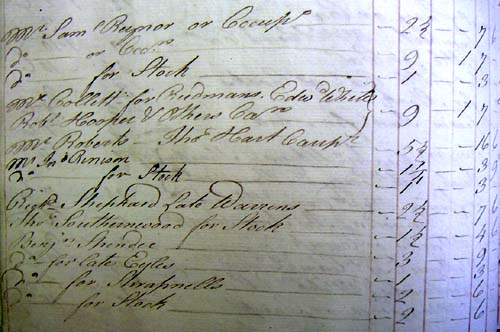 Mr. Saml. Raynor or Occupr. - 2½ - 7
Do. or Occr. - 9 - 1 7
Do. for Stock - 1 - 3
Mr. Collett for Birdmans Edwd. White
Robt. Hooper & Others Car - 9 - 1 7
Mr. Roberts Thos. Hart Occupr. - 5½ - 16
Mr. Jno. Benson - 1½ - 3
Do. for Stock - 1 - 3
Richd. Shephard Late Warrens - 2½ - 7
Thos. Southernwood for Stock - 1½ - 4
Benjn. - 3 - 9
Do. for Late Eyles - 1 - 3
Do. for Shrapnells - 2 - 6
Do. for Stock - 2 - 6